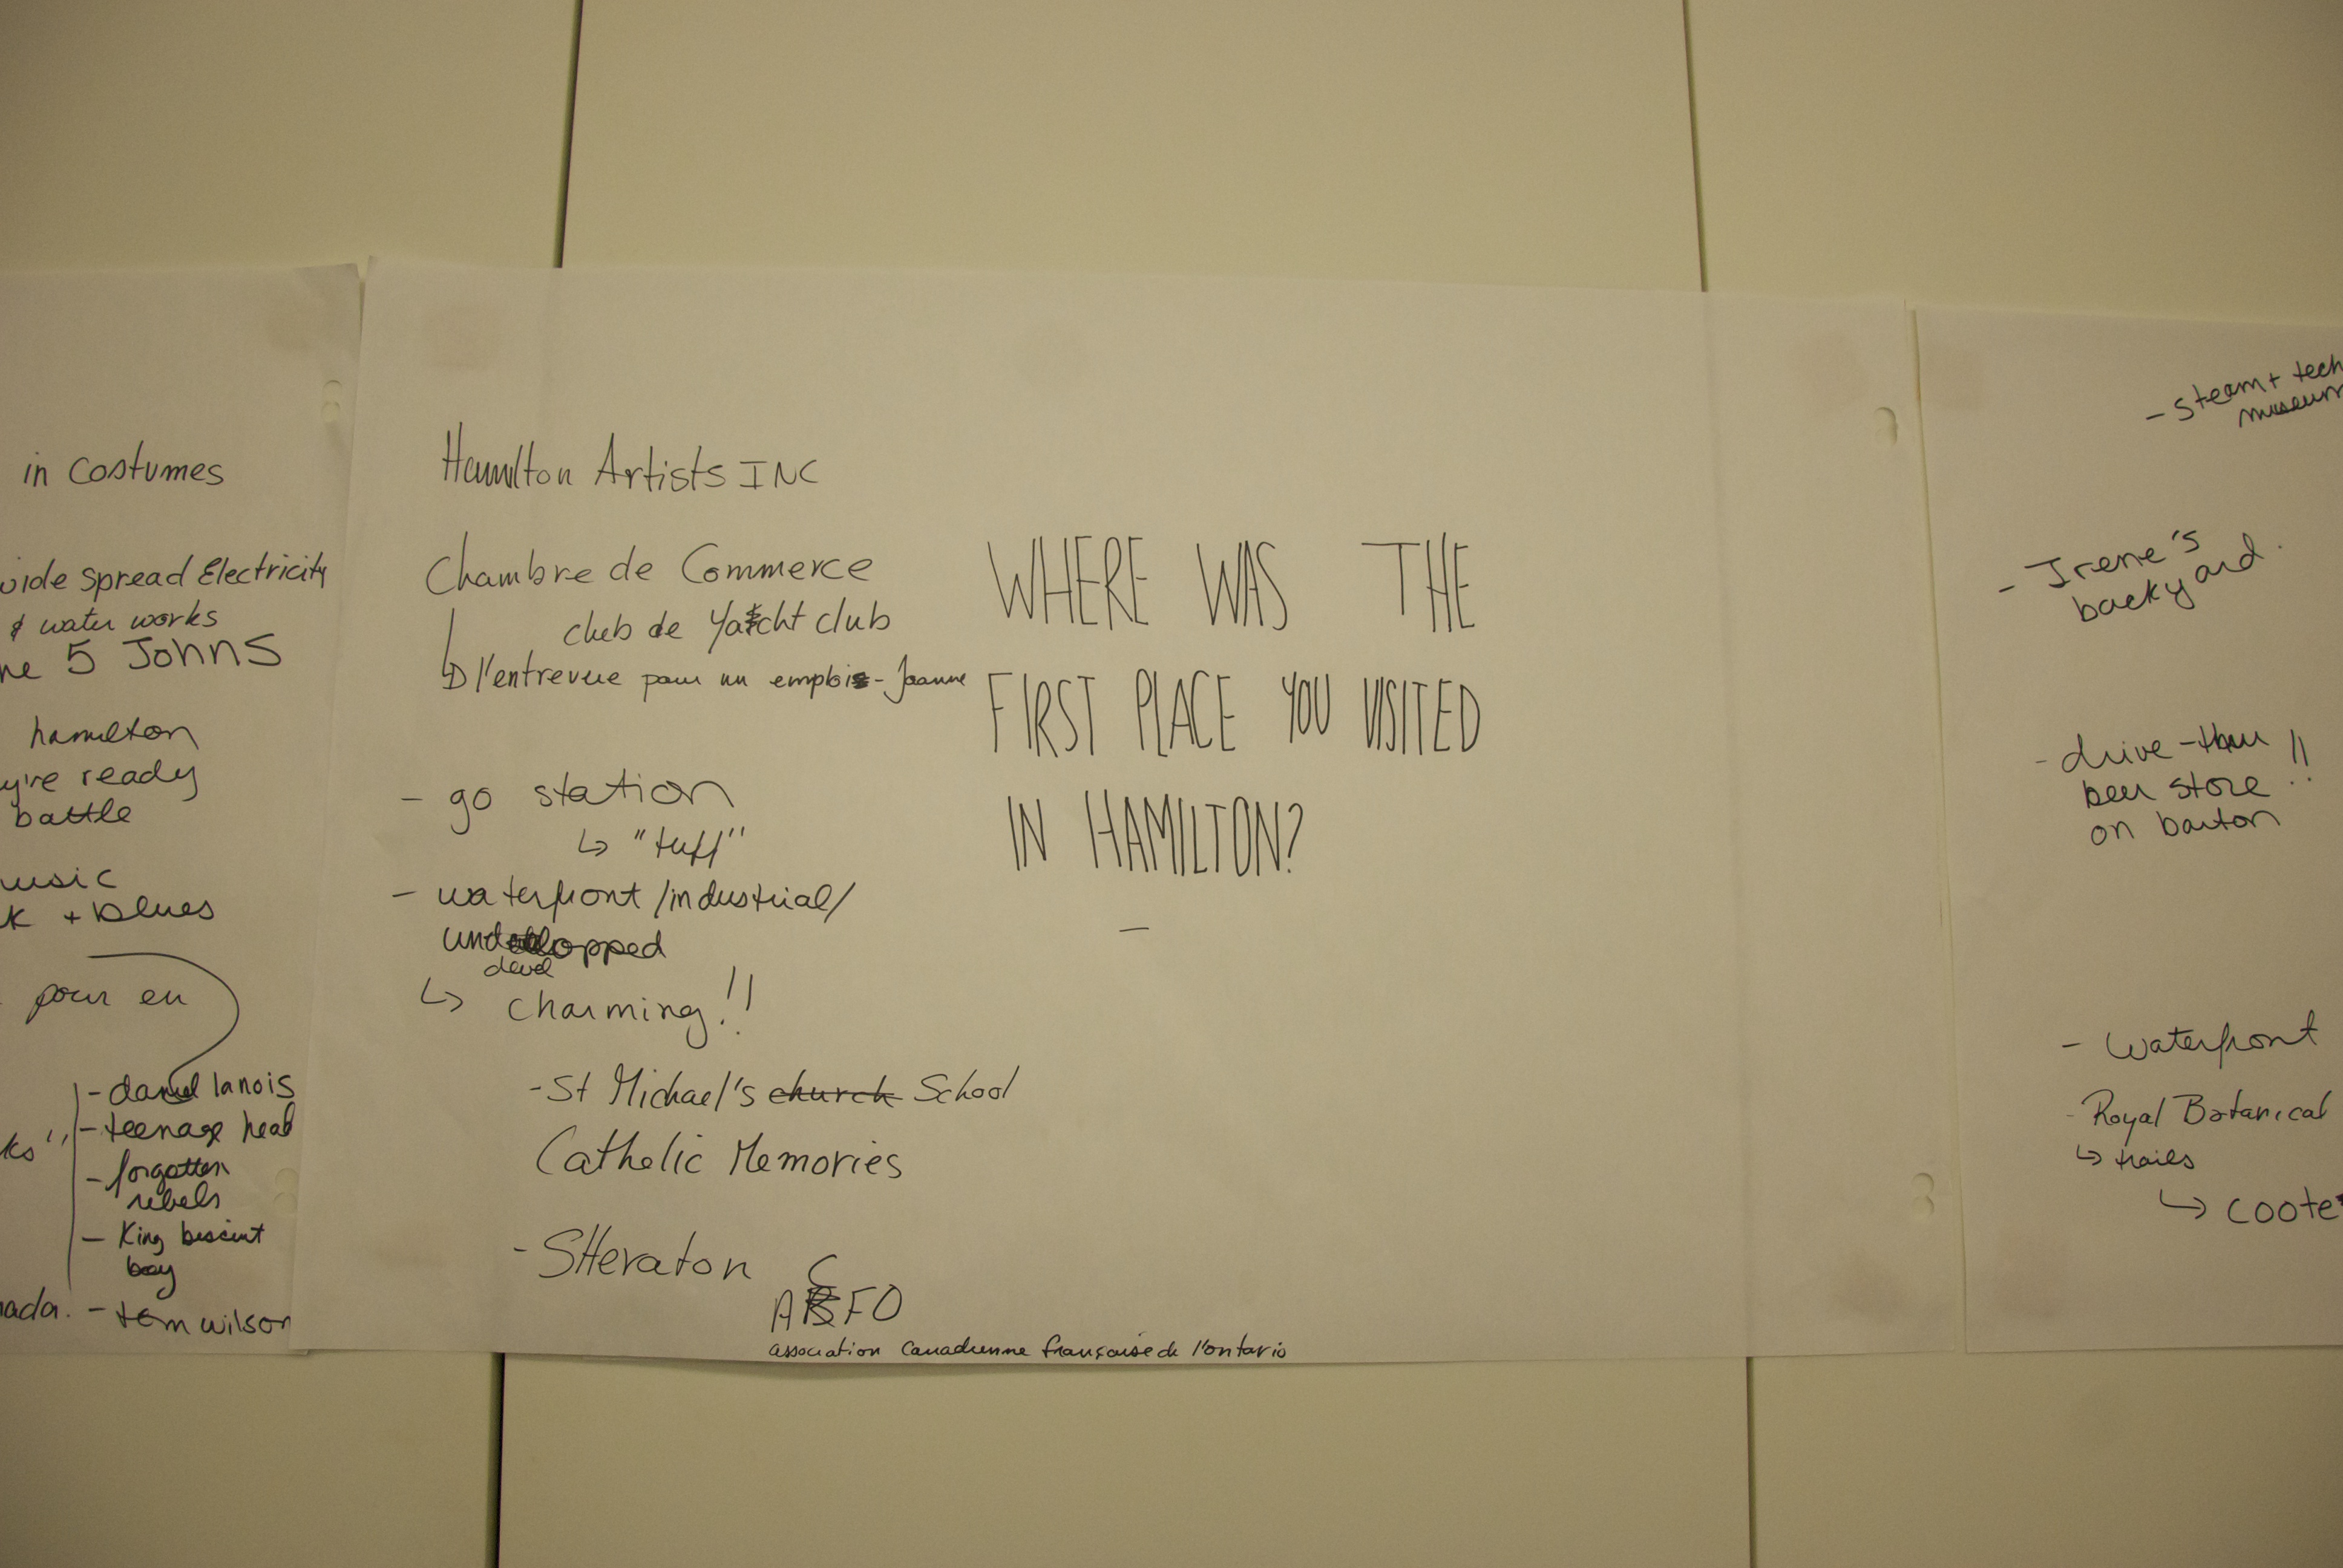 in Costumes
wide spread Electricity
& water works
5 Johns
hamilton
ready
battle
music
+ blues
pour en
- daniel lanois
- teenage head
- forgotten
rebels
- King biscuit
boy
- tom wilson
Hamilton Artists INC
Chambre de Commerce
club de Yacht club
↳ l'entrevue pour un emploi - Joanne
- go station
↳ "tuff"
- waterfront/industrial/
undevelopped
↳ charming!!
- St Michael's church School
Catholic Memories
- SHeraton
ACFO
association Canadienne française de l'ontario
WHERE WAS THE
FIRST PLACE YOU VISITED
IN HAMILTON?
-
- steam + tech
museum
- Irene's
backyard.
- drive-thru
beer store!!
on barton
- waterfront
- Royal Botanical
↳ trails
↳ coote